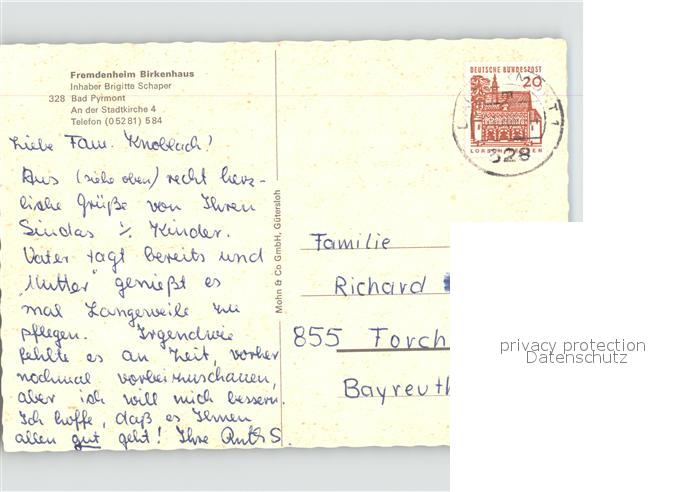 Fremdenheim Birkenhaus
Inhaber Brigitte Schaper
328 Bad Pyrmont
An der Stadtkirche 4
Telefon (05281) 584
Liebe Fam. Knoblach!
Aus (siehe oben) recht herz-
liche Grüße von Ihren
Sindas ./. Kinder.
Vater tagt bereits und
"Mutter" genießt es
mal Langeweile zu
pflegen. Irgendwie
fehlte es an Zeit, vorher
nochmal vorbeizuschauen,
aber ich will mich bessern.
Ich hoffe, daß es Ihnen
allen gut geht! Ihre Ruth S.
Mohn & Co GmbH, Gütersloh
DEUTSCHE BUNDESPOST
20
LORSCH
328
Familie
Richard
855 Forch
Bayreuth
privacy protection
Datenschutz